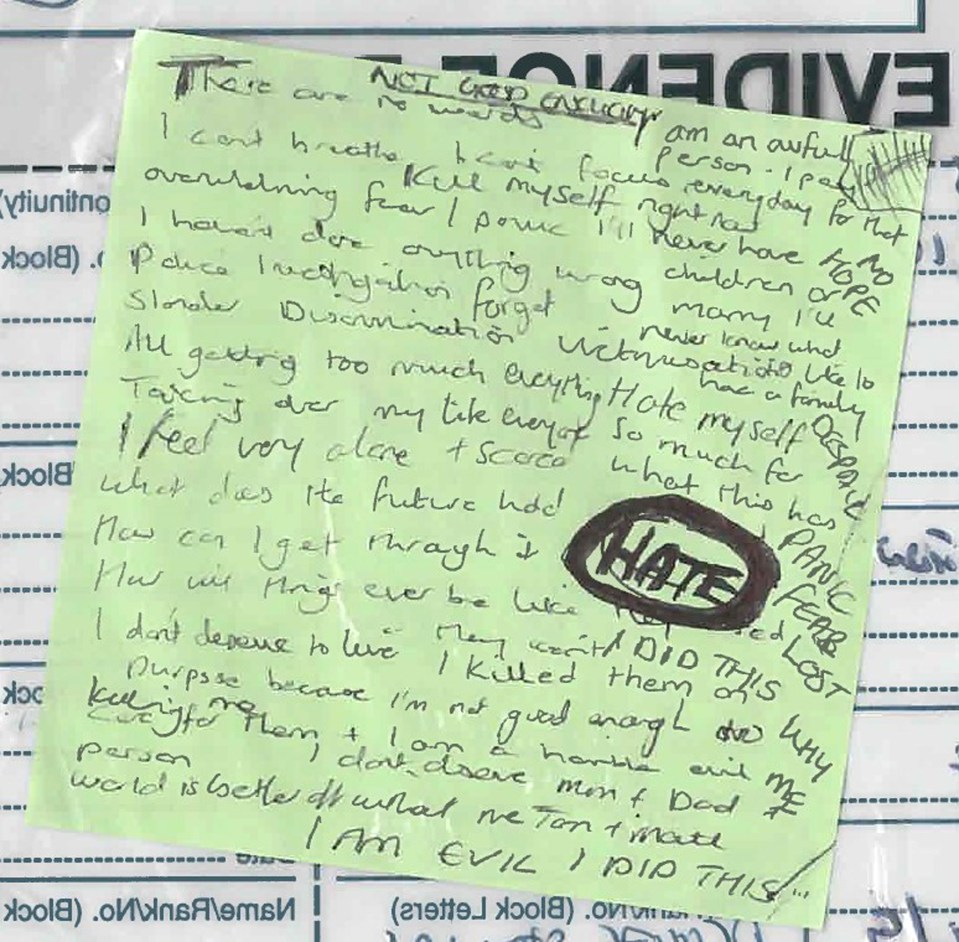 NOT GOOD ENOUGH
There are no words
I am an awful person. I pay everyday for that
I can't breathe I can't focus
Kill myself right now
overwhelming fear / panic I'll never have
I haven't done anything wrong children or
Police Investigation forget marry I'll
never know what
Slander Discrimination Victimisation its like to
have a family
All getting too much everything Hate myself
Taking over my life everyday so much for
I feel very alone + scared what this has
what does the future hold
How can I get through it
HATE
How will things ever be like
I don't deserve to live They went I DID THIS
I killed them on
purpose because I'm not good enough to
killing me
care for them, + I am a horrible evil
person I don't deserve mum + Dad
world is better off without me Tom + Matt
I AM EVIL I DID THIS
NO HOPE
DESPAIR
PANIC
FEAR
LOST
WHY
ME
EVIDENCE
(Block
Block
Name/Rank/No. (Block
/No. (Block Letters)